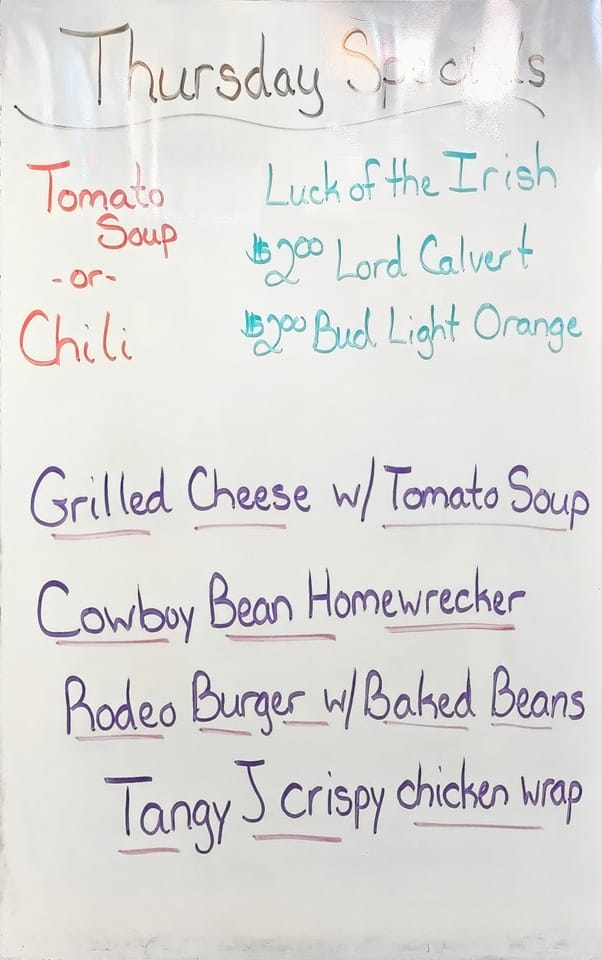 Thursday Specials
Tomato
Soup
-or-
Chili
Luck of the Irish
$2.00 Lord Calvert
$2.00 Bud Light Orange
Grilled Cheese w/ Tomato Soup
Cowboy Bean Homewrecker
Rodeo Burger w/ Baked Beans
Tangy J crispy chicken wrap